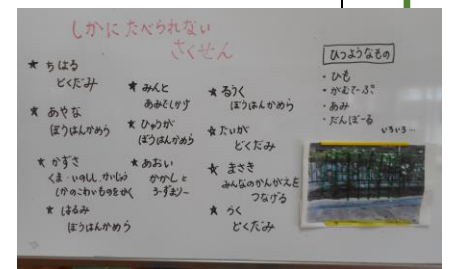 しかにたべられない
さくせん
★ ちはる
どくだみ
★ あやな
ぼうはんかめら
★ かずさ
くま・いのしし・かいじゅう
しかのこわいものをかく
★ はるみ
ぼうはんかめら
★ みんと
あみでしかけ
★ ひゅうが
ぼうはんかめら
★ あおい
かかし と
★ るうく
ぼうはんかめら
★ たいが
どくだみ
★ まさき
みんなのかんがえを
つなげる
★ らく
どくだみ
ひつようなもの
・ひも
・がむてーぷ
・あみ
・だんぼーる
いろいろ…